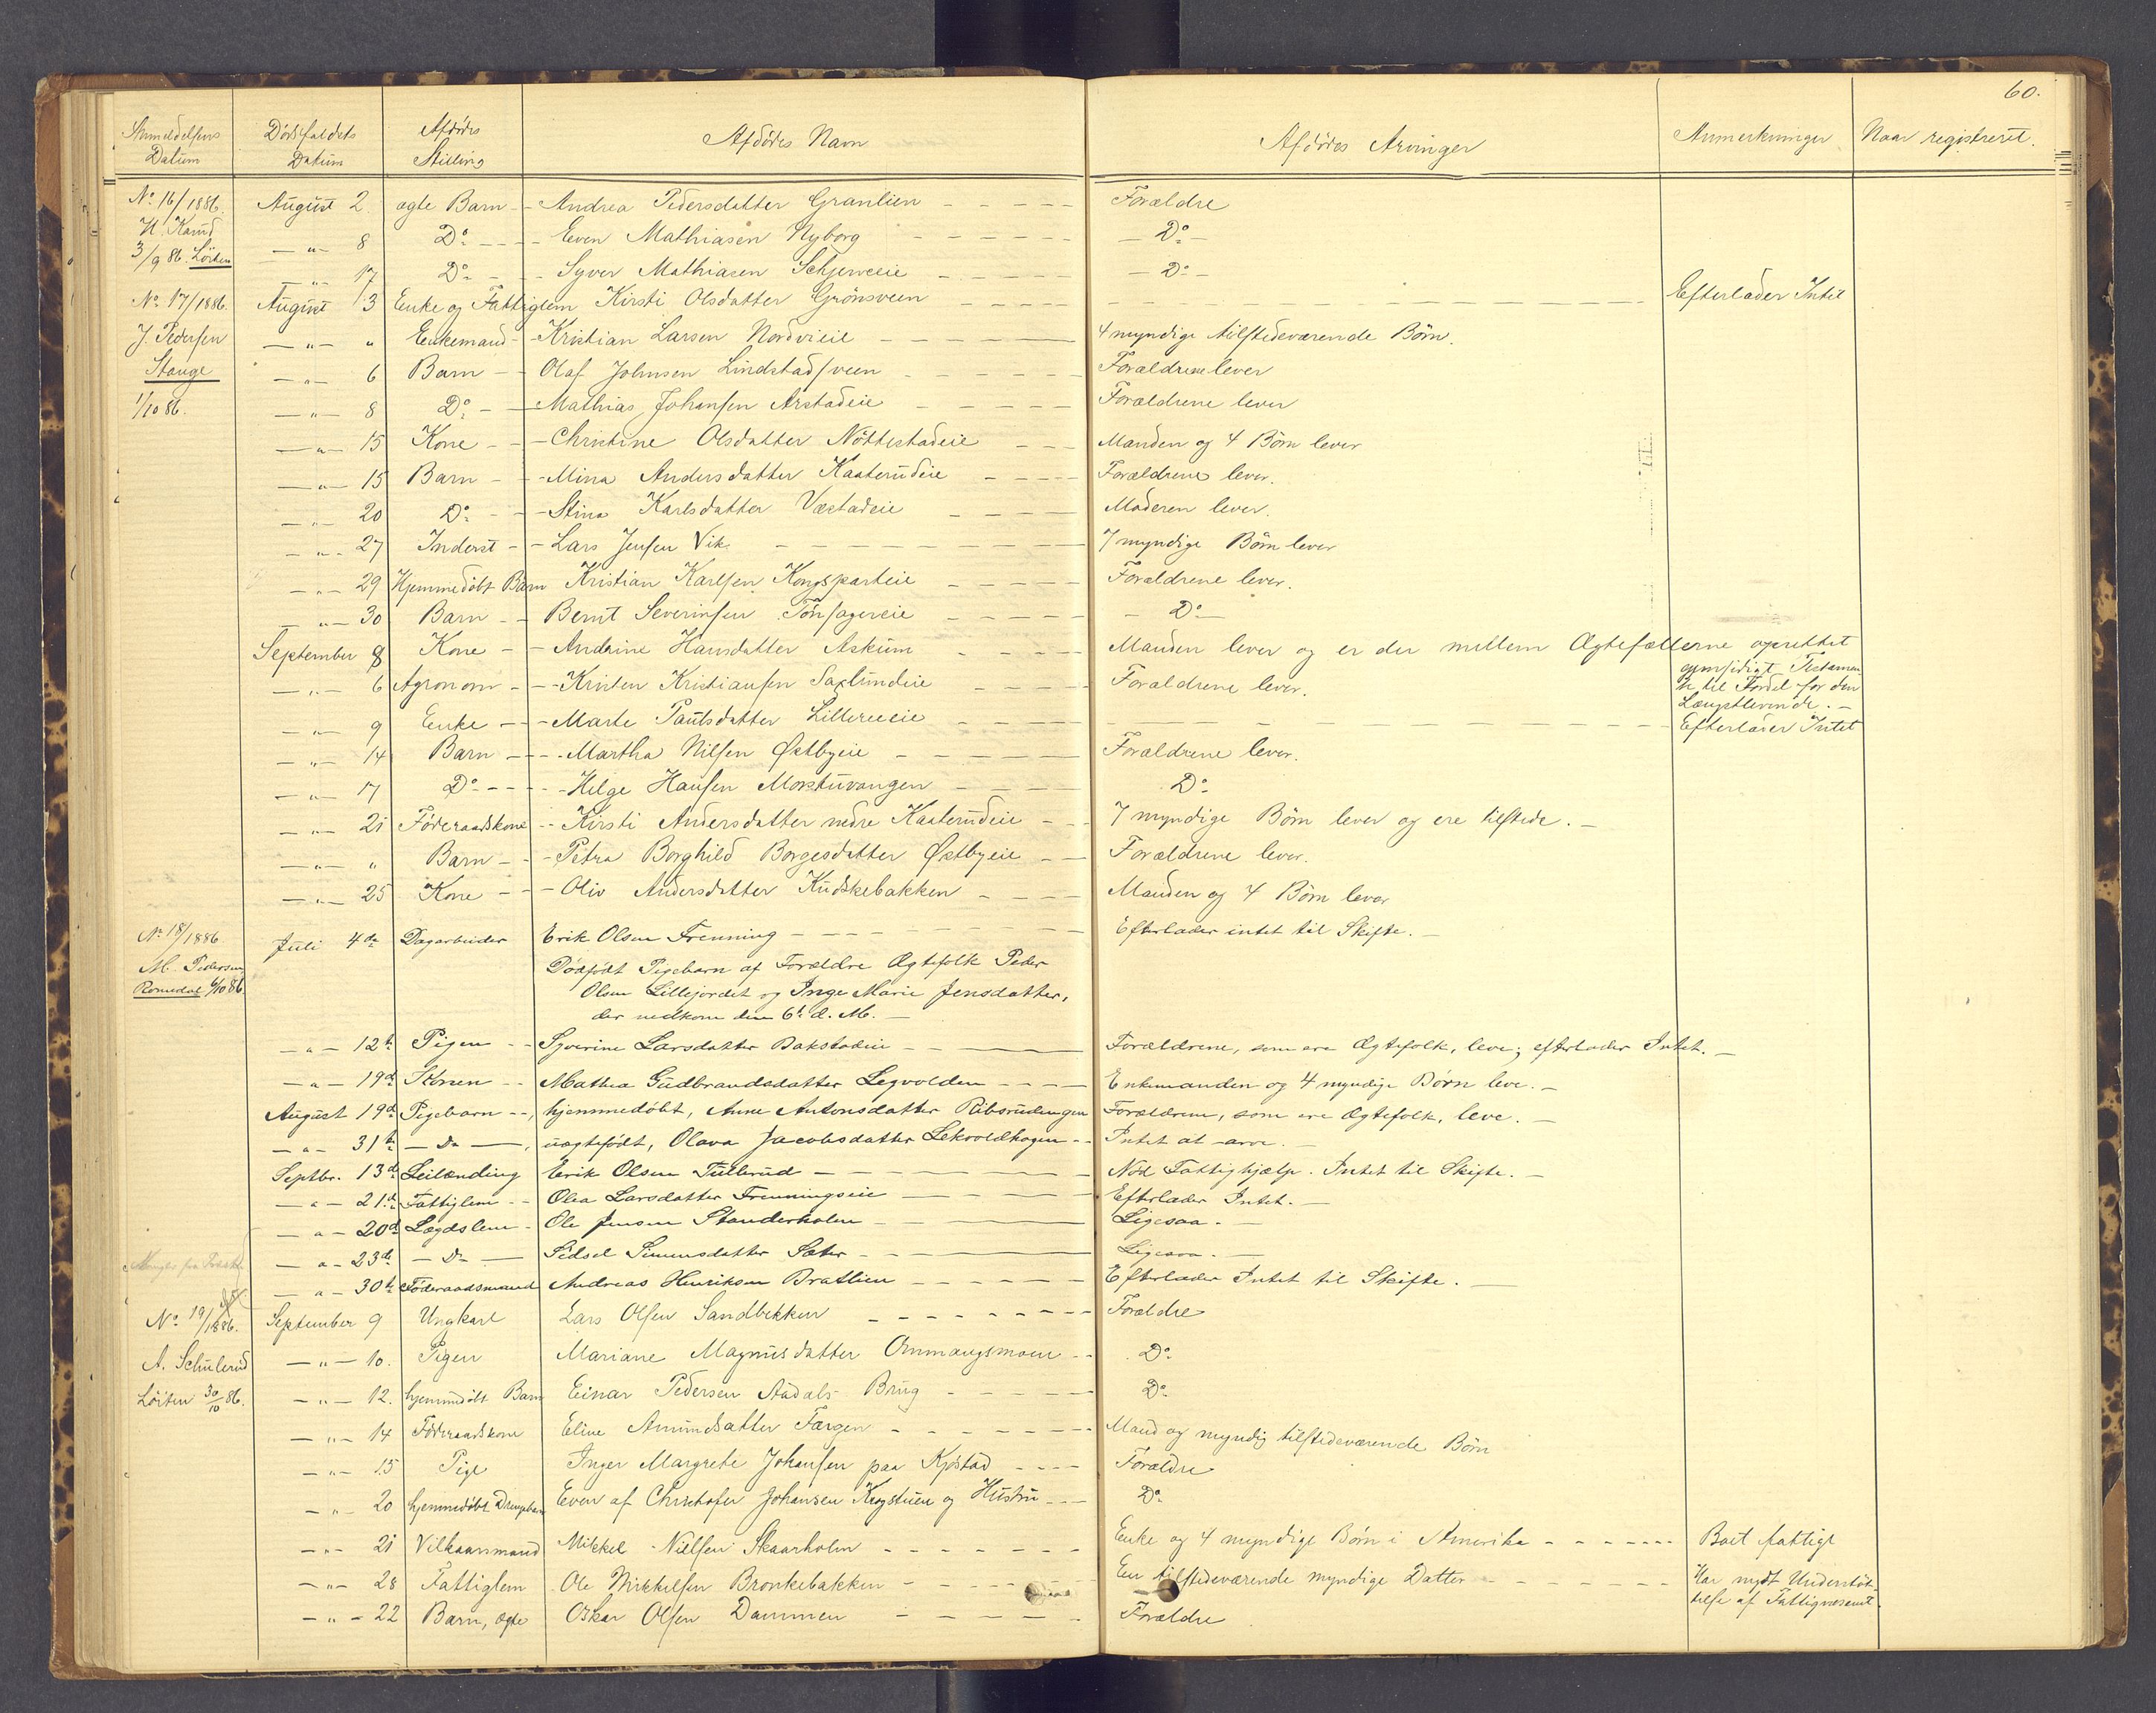 60.
Anmeldelsens Datum Dödsfaldets Datum Afdödes Stilling Afdödes Navn Afdödes Arvinger Anmerkninger Naar registreret.
No 16/1886. August 2 ægte Barn Andrea Pedersdatter Granlien Forældre
N. Kamd
— " — 8 Do Even Mathiasen Nyborg Do
3/9 86. Löiten — " — 17 Do Syver Mathiasen Do
No 17/1886. August 3 Enke og Fattiglem Kirsti Olsdatter Grönsveen Efterlader Intet
J. Pedersen — " — " Enkemand Kristian Larsen 4 myndige tilstedeværende Börn.
Stange — " — 6 Barn Olaf Johnsen Lindstadsveen Forældrene lever
1/10 86. — " — 8 Do Mathias Johansen Arstadeie Forældrene lever
— " — 15 Kone Christine Olsdatter Nöttestadeie Manden og 4 Börn lever
— " — 15 Barn Mina Andersdatter Kaaterudeie Forældrene lever.
— " — 20 Do Stina Karlsdatter Væstadeie Moderen lever.
— " — 27 Inderst Lars Jensen Vik 7 myndige Börn lever
— " — 29 Hjemmedöbt Barn Kristian Karlsen Kongsparteie Forældrene lever.
— " — 30 Barn Bernt Severinsen Tönsagereie Do
September 8 Kone Andrine Hansdatter Askum Manden lever og er der mellem Ægtefællerne oprettet
gjensidigt Testamen
te til Fordel for den
Længstlevende. —
— " — 6 Agronom Kristen Kristiansen Saxlundeie Forældrene lever.
— " — 9 Enke Marte Paulsdatter Efterlader Intet
— " — 14 Barn Martha Nilsen Østbyeie Forældrene lever.
— " — 17 Do Helge Hansen Morstuvangen Do
— " — 21 Föderaadskone Kirsti Andersdatter nedre Kaaterudeie 7 myndige Börn lever og ere tilstede. —
— " — " Barn Petra Borghild Borgesdatter Østbyeie Forældrene lever.
— " — 25 Kone Oliv Andersdatter Kudskebakken Manden og 4 Börn lever
No 18/1886. Juli 4de Dagarbeider Erik Olsen Frenning Efterlader intet til Skifte. —
M. Pedersen Dödfödt Pigebarn af Forældre Ægtefolk Peder
Romedal 6/10 86. Olsen Lillejordet og Inge Marie Jensdatter,
der nedkom den 6te d. M. —
— " — 12te Pigen Syverine Larsdatter Bakstadeie Forældrene, som ere Ægtefolk, leve; efterlader Intet. —
— " — 19de Konen Mathea Gudbrandsdatter Legvolden Enkemanden og 4 myndige Börn leve. —
August 19de Pigebarn hjemmedöbt, Anne Antonsdatter Ribsrudengen Forældrene, som ere Ægtefolk, leve. —
— " — 31te — Do — uægtefödt, Olava Jacobsdatter Lekvoldhagen Intet at arve. —
Septbr. 13de Leilænding Erik Olsen Tullerud Nöd Fattighjælp. Intet til Skifte. —
— " — 21de Fattiglem Olea Larsdatter Frenningseie Efterlader Intet. —
— " — 20de Lægdslem Ole Jensen Standerholm Ligesaa. —
— " — 23de — Do — Sidsel Simensdatter Sæter Ligesaa. —
Mangler fra
— " — 30te Föderaadsmand Andreas Henriksen Bratlien Efterlader Intet til Skifte. —
No 19/1886. September 9 Ungkarl Lars Olsen Sandbekken Forældre
A. Schulerud — " — 10. Pigen Mariane Magnusdatter Ommangsmoen Do
Löiten 30/10 86. — " — 12. hjemmedöbt Barn Einar Pedersen Aadals Brug Do
— " — 14 Föderaadskone Eline Amundsdatter Færgen Mand og myndig tilstedeværende Börn
— " — 15 Pige Inger Margrete Johansen paa Kjöstad Forældre
— " — 20 hjemmedöbt Drengebarn Even af Christofer Johansen Krogstuen og Hustru Do
— " — 21 Vilkaarsmand Mikkel Nielsen Skaarholm Enke og 4 myndige Börn i Amerika Boet fattigt
— " — 28 Fattiglem Ole Mikkelsen Bronkebakken En tilstedeværende myndige Datter Har nydt Understöt-
telse af Fattigvæsenet.
— " — 22 Barn, ægte Oskar Olsen Dammen Forældre